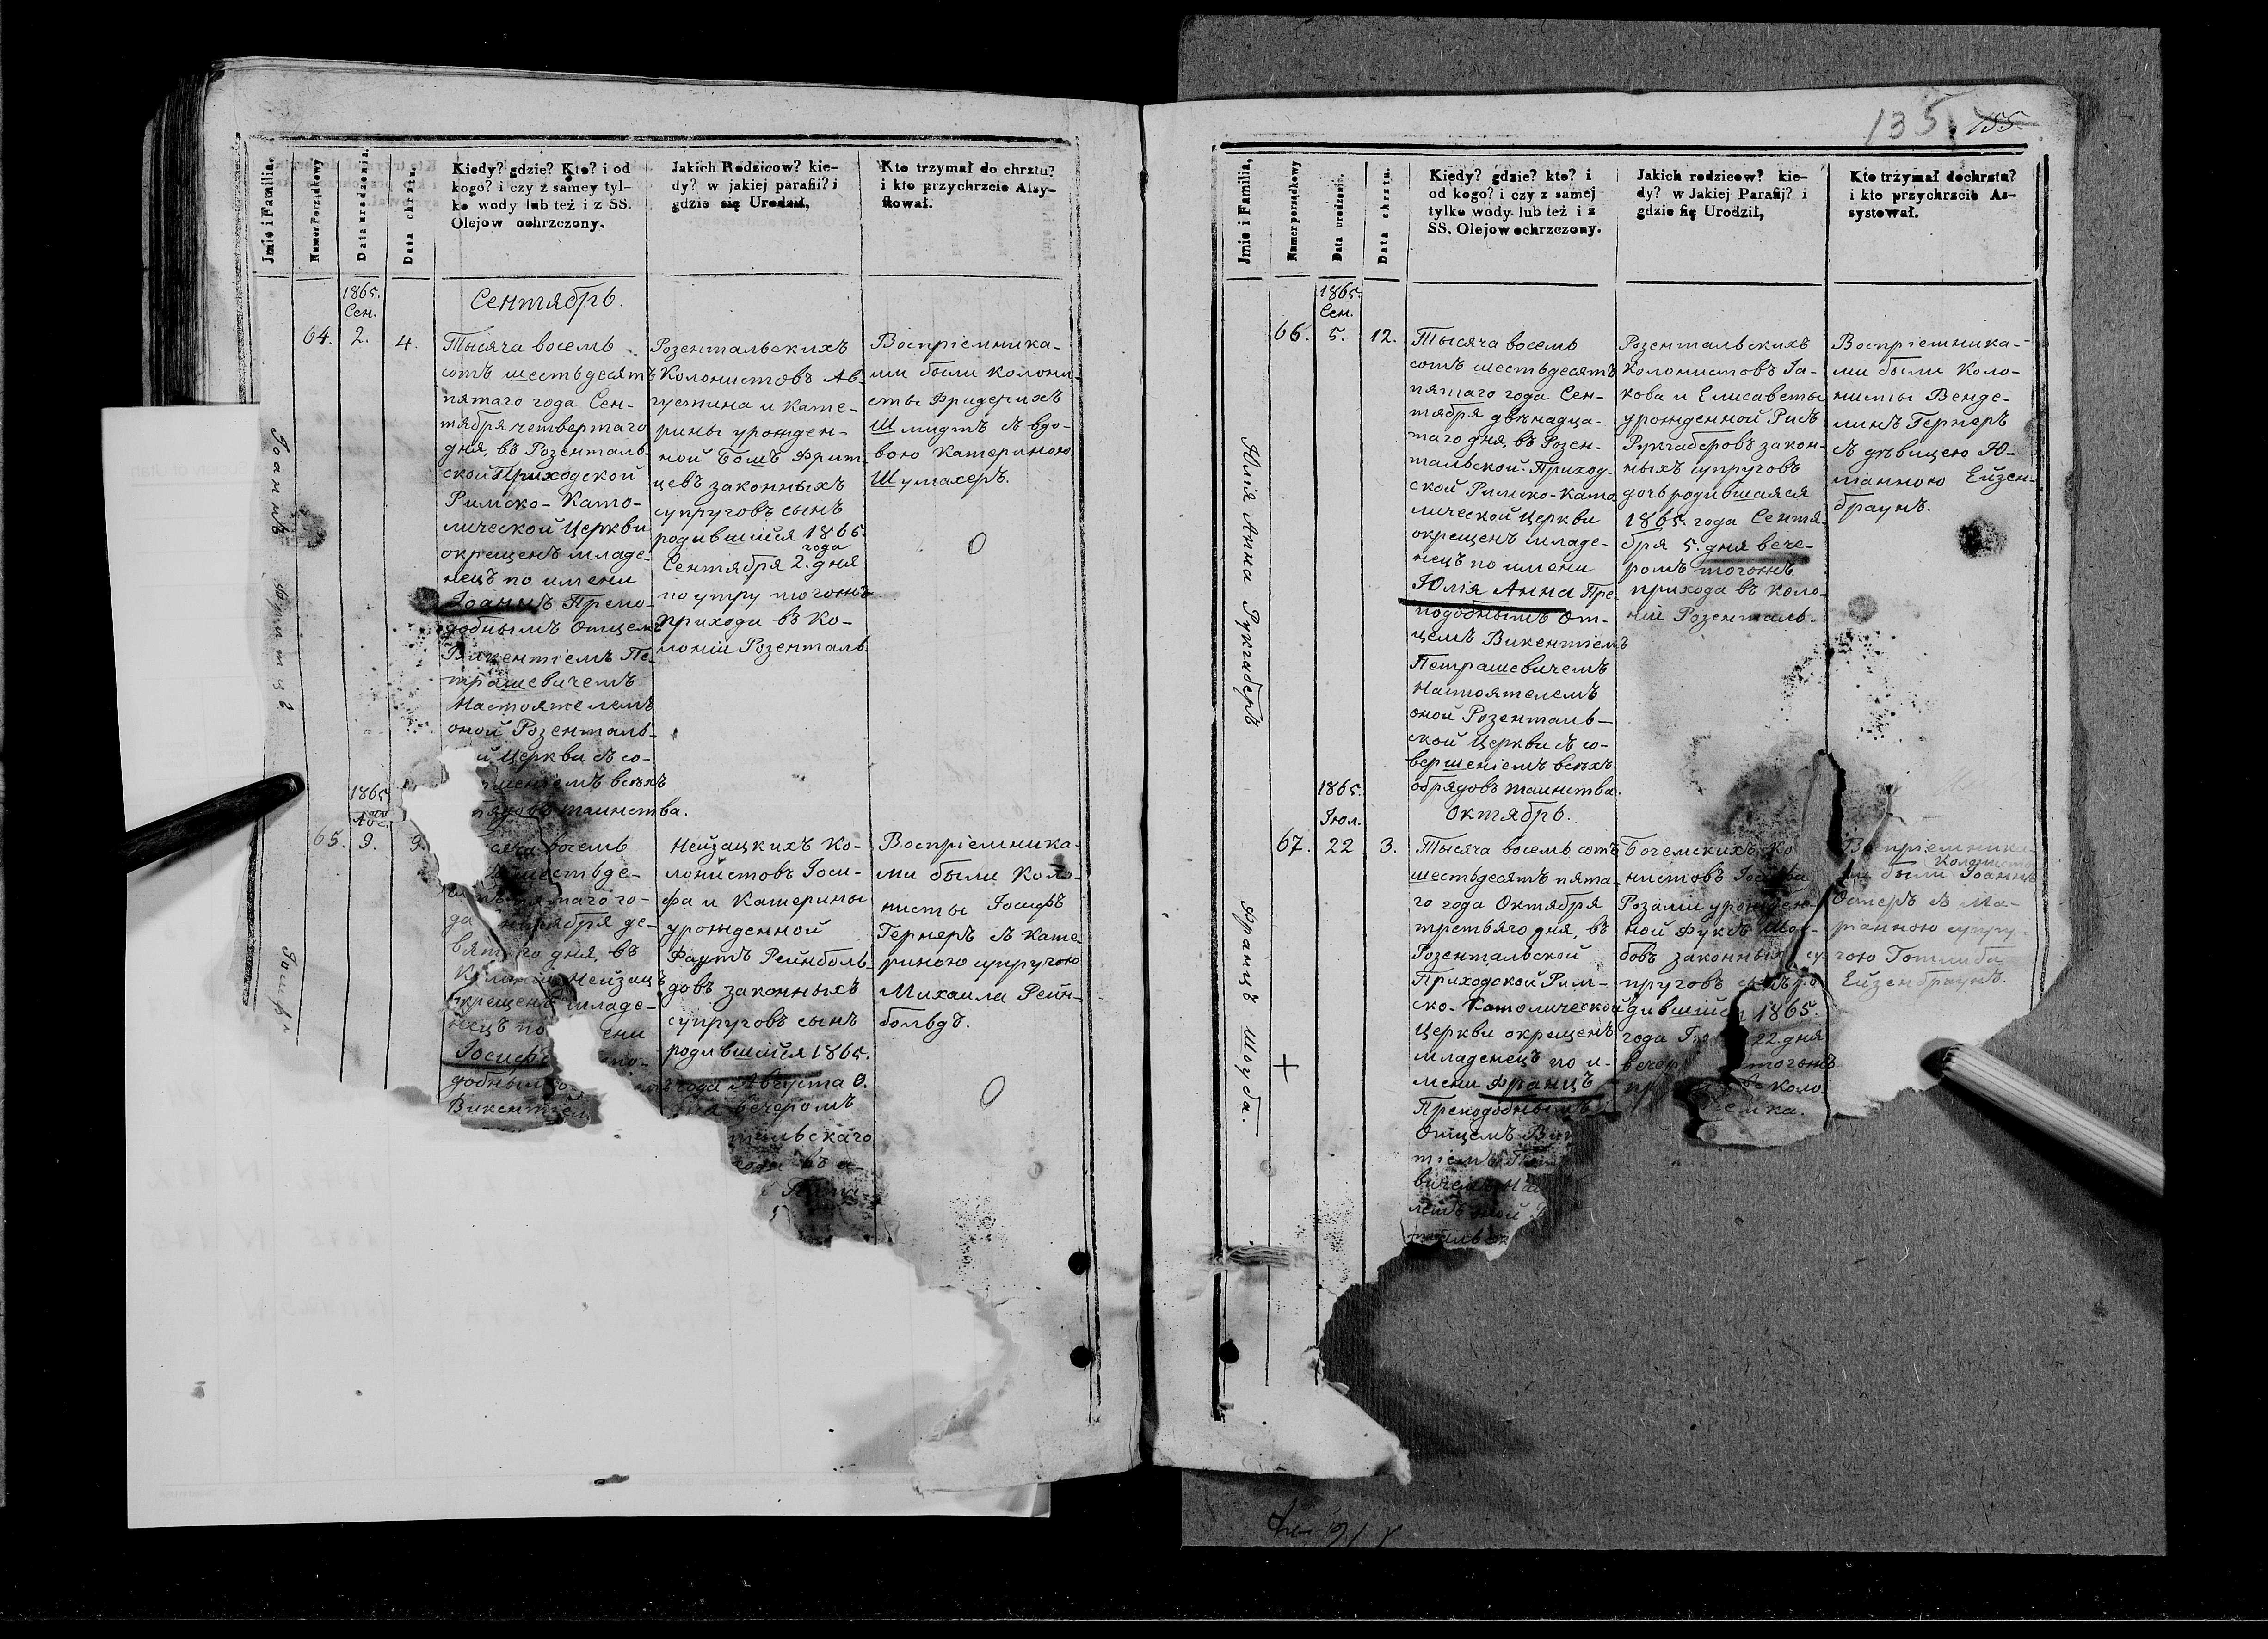 Jmie i Familia.
Numer Porządkowy
Data urodzenia.
Data chrztu.
Kiedy? gdzie? Kto? i od
kogo? i czy z samey tyl-
ko wody lub też i z SS.
Olejow ochrzczony.
Jakich Rodzicow? kie-
dy? w jakiej parafii? i
gdzie się Urodził,
Kto trzymał do chrztu?
i kto przychrzcie Assy-
stował.
1865.
Сен.
Сентябрь.
Іоаннъ Фритцъ
64. 2. 4.
Тысяча восемь
сотъ шестьдесятъ
пятаго года Сен-
тября четвертаго
дня, въ Розенталь-
ской Приходской
Римско-Като-
лической Церкви
окрещенъ младе-
нецъ по имени
Іоаннъ Препо-
добнымъ Отцемъ
Викентіемъ Пе-
трашевичемъ
Настоятелемъ
оной Розенталь-
й Церкви съ со-
шеніемъ всѣхъ
ядовъ таинства.
Розентальскихъ
Колонистовъ Ав-
густина и Кате-
рины урожден-
ной Бомъ Фрит-
цевъ законныхъ
супруговъ сынъ
родившійся 1865.
года
Сентября 2. дня
по утру тогожъ
прихода въ Ко-
лоніи Розенталь.
Воспріемника-
ми были Колони-
сты Фридерихъ
Шмидтъ съ вдо-
вою Катериною
Шумахеръ.
1865.
Авг.
Іосифъ
65. 9. 9.
восемь
шестьде-
пятаго го-
да де-
вятаго дня, въ
Колоніи Нейзацъ
окрещенъ младе-
нецъ по ени
Іосифъ
добным
Викентіем
Нейзацкихъ Ко-
лонистовъ Іоси-
фа и Катерины
урожденной
Фаутъ Рейнболь-
довъ законныхъ
супруговъ сынъ
родившійся 1865.
года Августа 9.
вечеромъ
тальскаго
Воспріемника-
ми были Коло-
нисты Іосифъ
Гернеръ съ Кате-
риною супругою
Михаила Рейн-
больдъ.
135. 155.
Jmie i Familia,
Numer porządkowy
Data urodzenia.
Data chrztu.
Kiedy? gdzie? kto? i
od kogo? i czy z samej
tylko wody lub też i z
SS. Olejow ochrzczony.
Jakich rodzicow? kie-
dy? w Jakiej Parafij? i
gdzie się Urodził,
Kto trzymał dochrztu?
i kto przychrzcie As-
systował.
1865.
Сен.
Юлія Анна Рукгаберъ
66. 5. 12.
Тысяча восемь
сотъ шестьдесятъ
пятаго года Сен-
тября двѣнадца-
таго дня, въ Розен-
тальской Приход-
ской Римско-Като-
лической Церкви
окрещенъ младе-
нецъ по имени
Юлія Анна Пре-
подобнымъ От-
цемъ Викентіемъ
Петрашевичемъ
Настоятелемъ
оной Розенталь-
ской Церкви съ со-
вершеніемъ всѣхъ
обрядовъ таинства.
Розентальскихъ
Колонистовъ Іа-
кова и Елисаветы
урожденной Рибъ
Рукгаберовъ закон-
ныхъ супруговъ
дочь родившаяся
1865. года Сентя-
бря 5. дня вече-
ромъ тогожъ
прихода въ Коло-
ніи Розенталь.
Воспріемника-
ми были Коло-
нисты Венде-
линъ Гернеръ
съ дѣвицею Ю-
ліанною Ейзен-
браунъ.
1865.
Іюл.
Октябрь.
Францъ Шоуба.
67. 22 3.
Тысяча восемь сотъ
шестьдесятъ пята-
го года Октября
третьяго дня, въ
Розентальской
Приходской Рим-
ско-Католической
Церкви окрещенъ
младенецъ по и-
мени Францъ
Преподобнымъ
Отцемъ Ви
тіемъ Пет
вичемъ На
лемъ оной Р
тальск
Богемскихъ Ко
нистовъ Іосифа
Розаліи урожден-
ной Фуксъ Шоу-
бовъ законныхъ су-
пруговъ сынъ ро
дившійся 1865.
года Ію 22. дня
вечер тогожъ
пр въ Коло-
емка.
Воспріемника-
Колонисты
ми были Іоаннъ
Остеръ съ Ма-
ріанною супру-
гою Готлиба
Ейзенбраунъ.